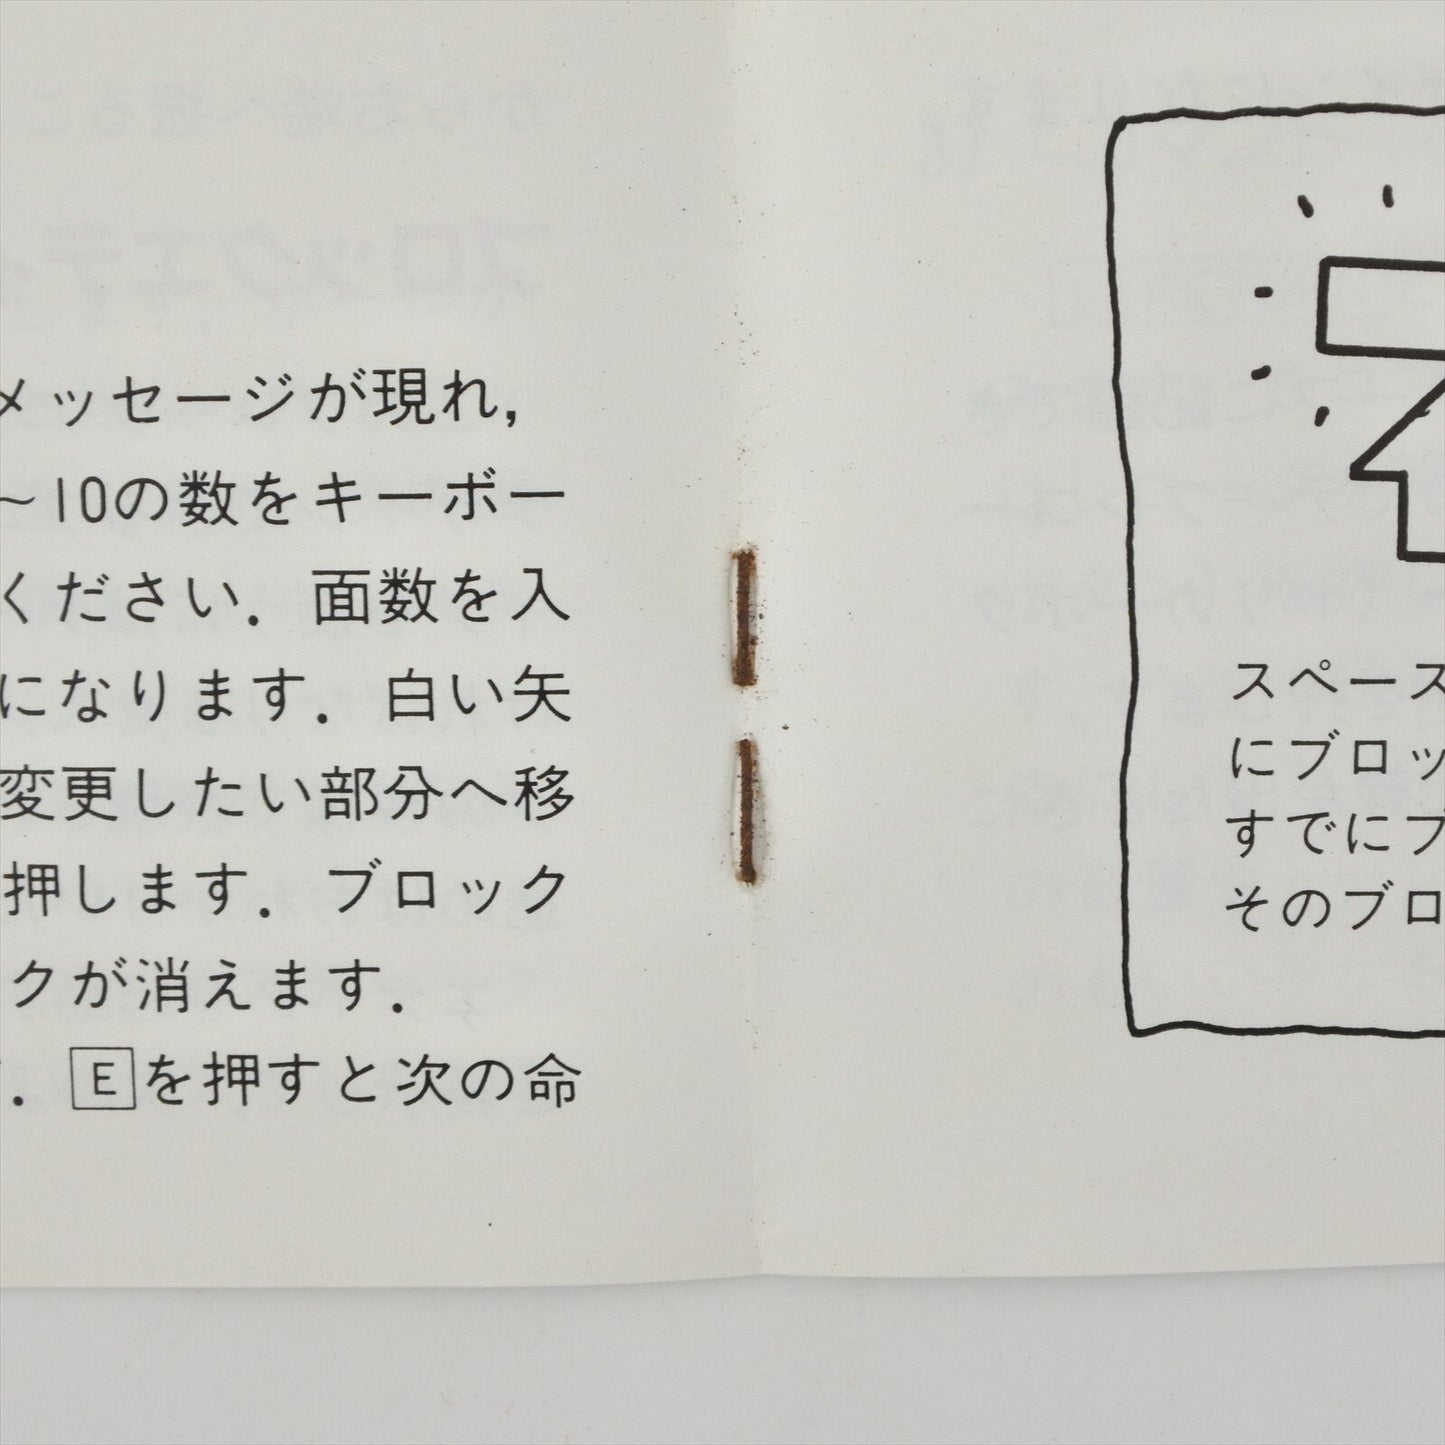 メッセージが現れ,
～10の数をキーボー
ください. 面数を入
になります. 白い矢
変更したい部分へ移
押します. ブロック
クが消えます.
. Eを押すと次の命
スペース
にブロッ
すでにブ
そのブロ